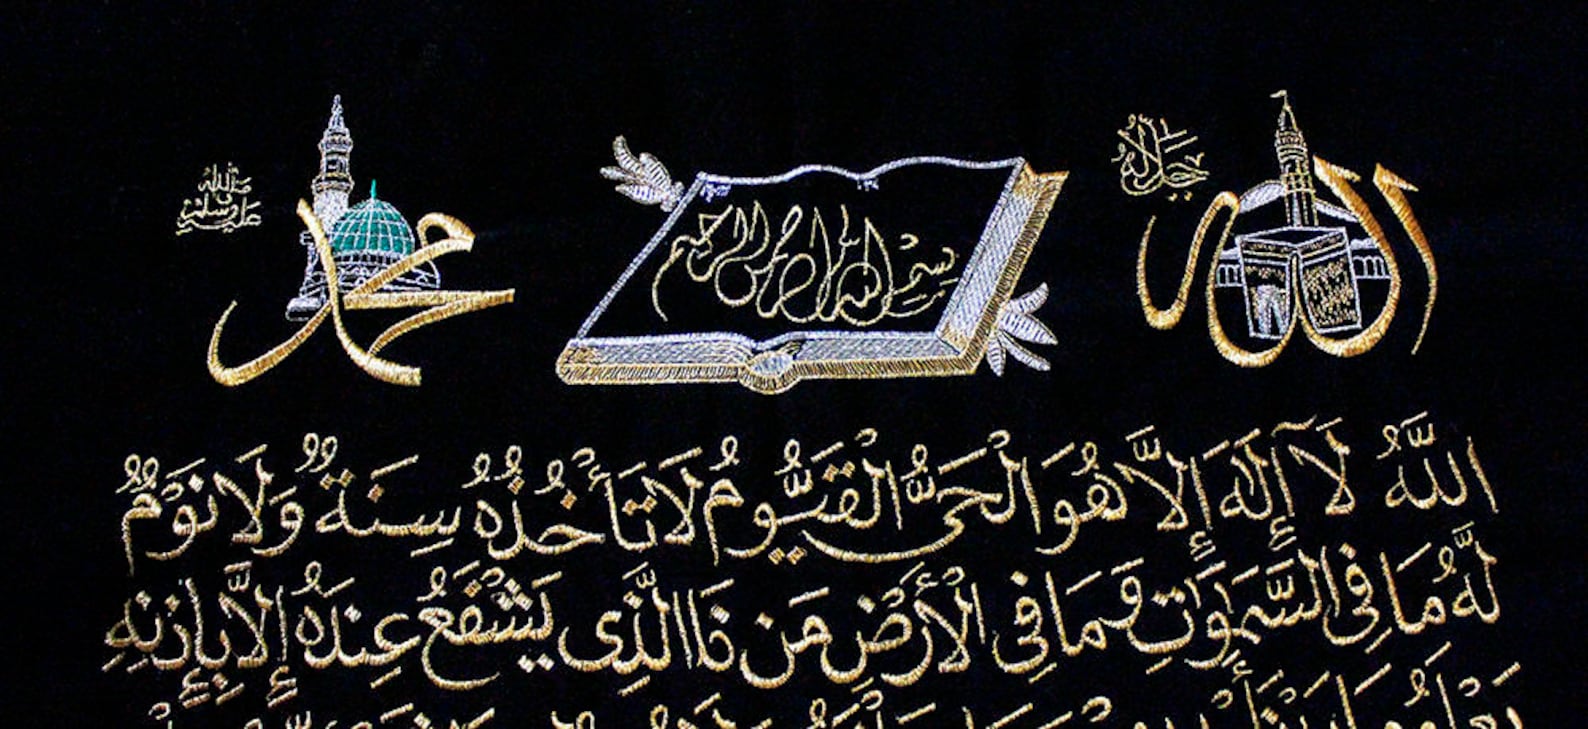 الله جل جلاله
بسم الله الرحمن الرحيم
محمد صلى الله عليه وسلم
اللَّهُ لَآ إِلَٰهَ إِلَّا هُوَ الْحَيُّ الْقَيُّومُ لَا تَأْخُذُهُ سِنَةٌ وَلَا نَوْمٌ
لَّهُ مَا فِي السَّمَٰوَٰتِ وَمَا فِي الْأَرْضِ مَن ذَا الَّذِي يَشْفَعُ عِندَهُ إِلَّا بِإِذْنِهِ